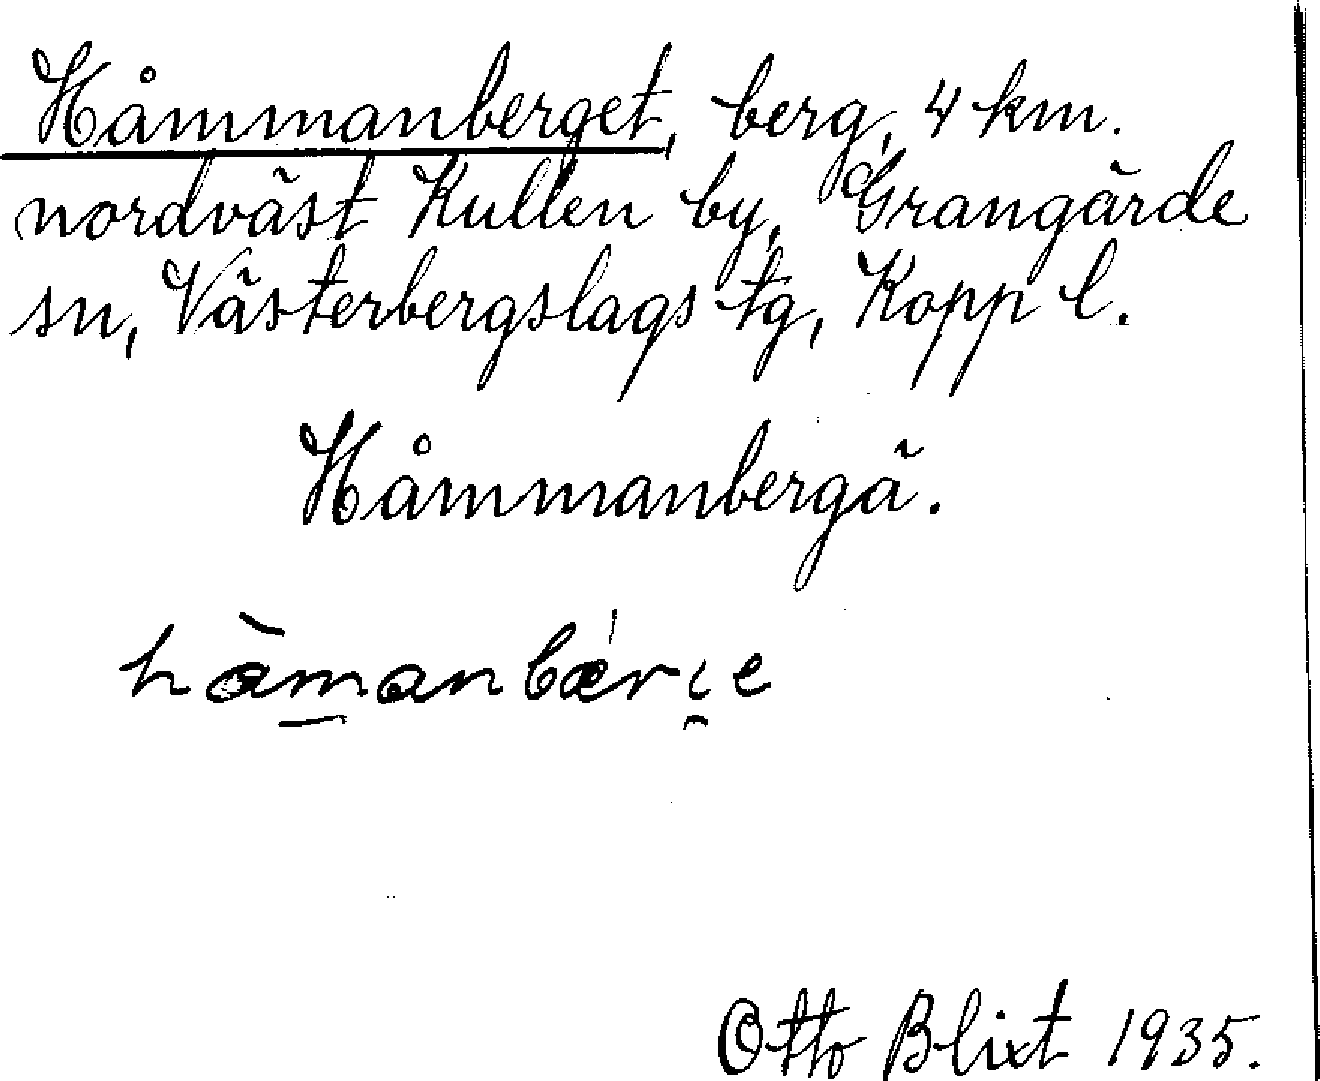 Håmmanberget, berg, 4 km.
nordväst Kullen by, Grangärde
sn, Västerbergslags tg, Kopp l.
Håmmanbergä.
hàmanbǽrı̯e
Otto Blixt 1935.